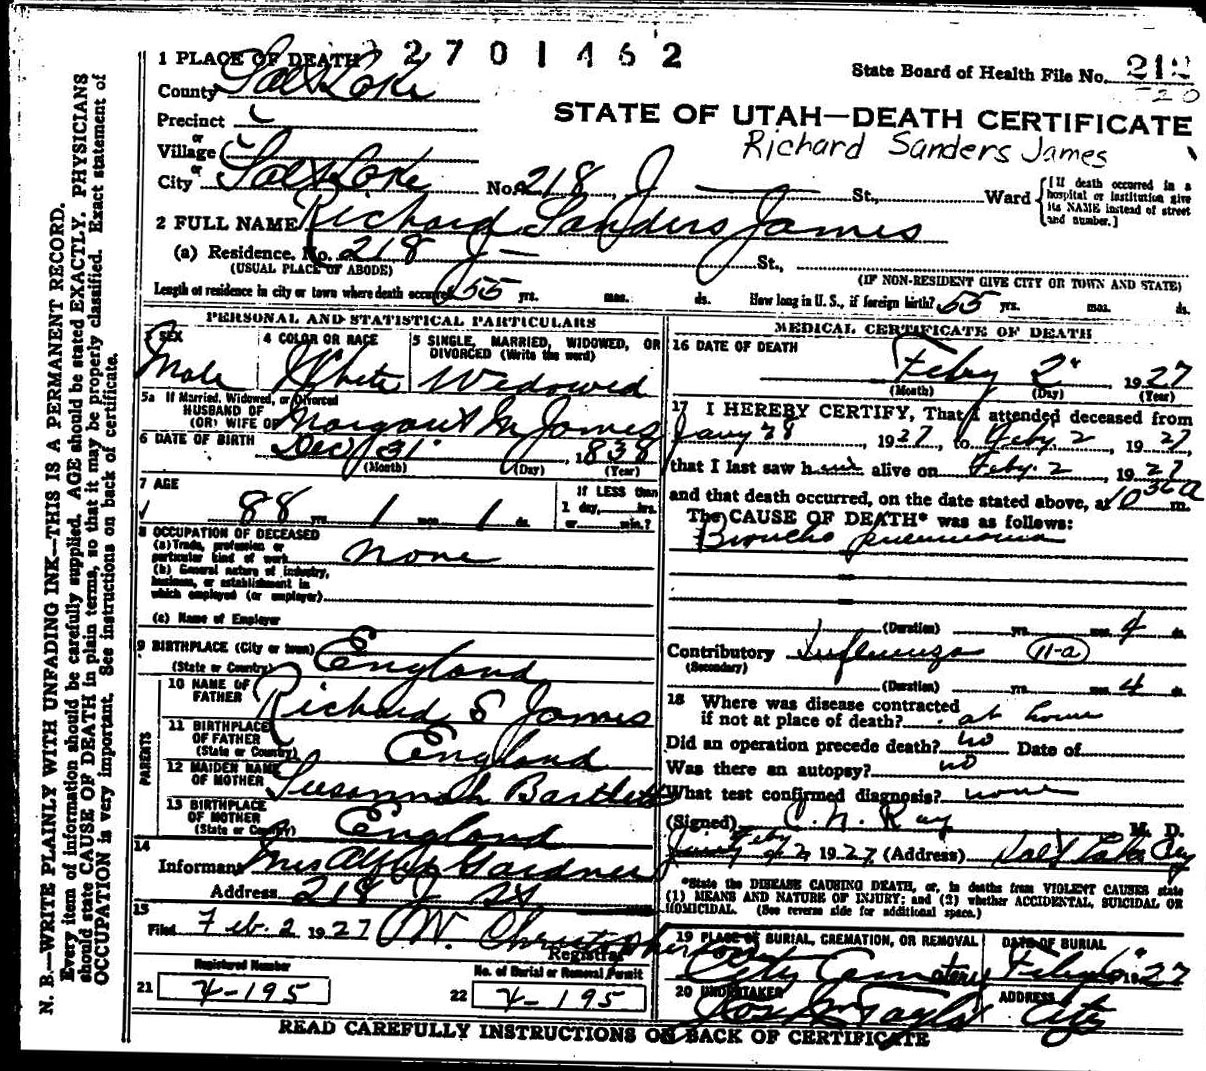 N. B.—WRITE PLAINLY WITH UNFADING INK—THIS IS A PERMANENT RECORD.
Every item of information should be carefully supplied. AGE should be stated EXACTLY. PHYSICIANS
should state CAUSE OF DEATH in plain terms, so that it may be properly classified. Exact statement of
OCCUPATION is very important. See instructions on back of certificate.
2701462
1 PLACE OF DEATH
County Salt Lake
State Board of Health File No.
STATE OF UTAH—DEATH CERTIFICATE
Richard Sanders James
Precinct
or
Village
or
City Salt Lake No. 218 J St., Ward
[If death occurred in a
hospital or institution give
its NAME instead of street
and number.]
2 FULL NAME Richard Sanders James
(a) Residence. No. 218 J St.,
(USUAL PLACE OF ABODE)
(IF NON-RESIDENT GIVE CITY OR TOWN AND STATE)
Length of residence in city or town where death occurred 55 yrs. mos. ds. How long in U. S., if foreign birth? 55 yrs. mos. ds.
PERSONAL AND STATISTICAL PARTICULARS
3 SEX
Male
4 COLOR OR RACE
White
5 SINGLE, MARRIED, WIDOWED, OR
DIVORCED (Write the word)
Widowed
5a If Married, Widowed, or Divorced
HUSBAND OF
(OR) WIFE OF Margaret M James
6 DATE OF BIRTH
Dec 31 1838
(Month) (Day) (Year)
7 AGE
88 yrs. 1 mos. 1 ds.
If LESS than
1 day, hrs.
or min.?
8 OCCUPATION OF DECEASED
(a) Trade, profession or
particular kind of work none
(b) General nature of industry,
business, or establishment in
which employed (or employer)
(c) Name of Employer
9 BIRTHPLACE (City or town)
(State or Country) England
PARENTS
10 NAME OF
FATHER Richard S James
11 BIRTHPLACE
OF FATHER
(State or Country) England
12 MAIDEN NAME
OF MOTHER Susannah Bartlett
13 BIRTHPLACE
OF MOTHER
(State or Country) England
14
Informant Mrs Gardner
Address 218 J St
15
Filed Feb. 2 1927
Registrar
Registered Number
21
No. of Burial or Removal Permit
22
MEDICAL CERTIFICATE OF DEATH
16 DATE OF DEATH
Feby 2" 1927
(Month) (Day) (Year)
17 I HEREBY CERTIFY, That I attended deceased from
Jany 28, 1927, to Feby 2, 1927,
that I last saw him alive on Feby. 2, 1927
and that death occurred, on the date stated above, at 10 36 a m.
The CAUSE OF DEATH* was as follows:
Broncho pneumonia
(Duration) yrs. mos. 4 ds.
Contributory Influenza 11-a
(Secondary)
(Duration) yrs. mos. 4 ds.
18 Where was disease contracted
if not at place of death? at home
Did an operation precede death? no Date of
Was there an autopsy? no
What test confirmed diagnosis? none
(Signed) C. N. Ray M. D.
Feby 2 1927 (Address) Salt Lake City
*State the DISEASE CAUSING DEATH, or, in deaths from VIOLENT CAUSES state
(1) MEANS AND NATURE OF INJURY; and (2) whether ACCIDENTAL, SUICIDAL OR
HOMICIDAL. (See reverse side for additional space.)
19 PLACE OF BURIAL, CREMATION, OR REMOVAL
City Cemetery
DATE OF BURIAL
1927
20 UNDERTAKER
Taylor
ADDRESS
City
READ CAREFULLY INSTRUCTIONS ON BACK OF CERTIFICATE